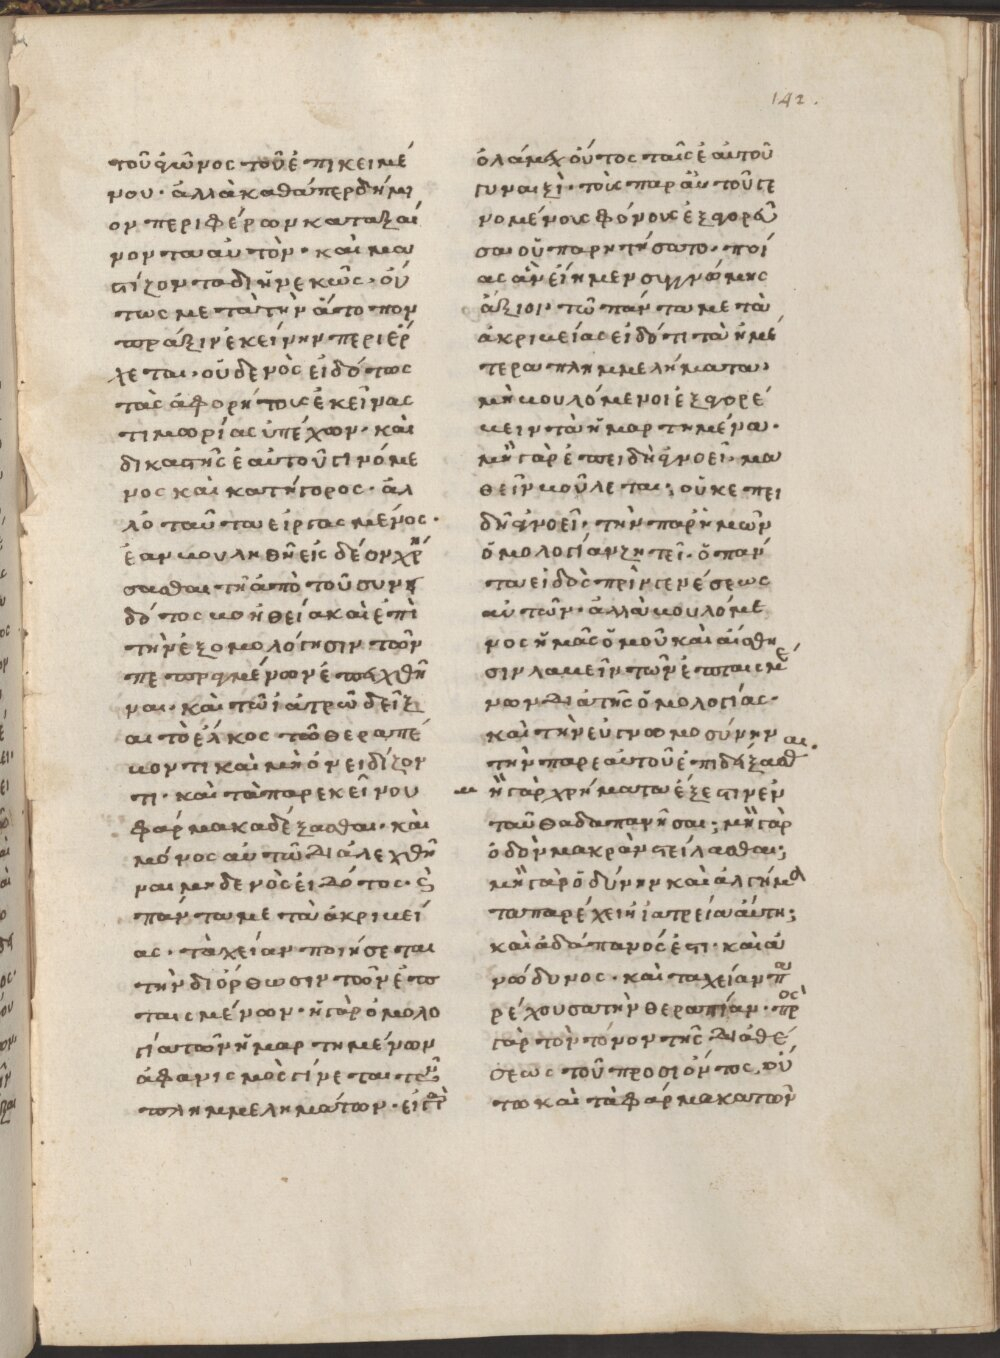 142.
τοῦ φῶνος τοῦ ἐπικειμέ
νου· ἀλλὰ καθάπερ δήμι
ον περιφέρων καταξαί
νοντα αὐτὸν· καὶ μα
στίζοντα διηνεκῶς· οὕ
τως μετὰ τὴν ἄτοπον
πρᾶξιν ἐκείνην περιέρ
χεται· οὐδενὸς εἰδότος
τὰς ἀφορήτους ἐκείνας
τιμωρίας ὑπέχων· καὶ
δικαστὴς ἑαυτοῦ γινόμε
νος καὶ κατήγορος· ἀλ
λὁ ταῦτα εἰργασμένος·
ἐὰν βουληθῆ εἰς δέον χρή
σασθαι τῆ ἀπὸ τοῦ συνει
δότος βοηθεία καὶ ἐπὶ
τὴν ἐξομολόγησιν τῶν
πεπραγμένων ἐπειχθῆ
ναι· καὶ τῶ ἰατρῶ δεῖξ
αι τὸ ἕλκος τῶ θεραπέ
βοντι καὶ μὴ ὀνειδίζον
τι· καὶ τὰ παρ ἐκείνου
φάρμακα δέξασθαι· καὶ
μόνος αὐτῶ διαλεχθῆ
ναι μηδενὸς εἰδότος· καὶ
πάντα μετὰ ἀκριβεί
ας· ταχείαν ποιήσεται
τὴν διόρθωσιν τῶν ἐπ
ταισμένων· ἡ γὰρ ὁμολο
γία τῶν ἡμαρτημένων
ἀφανισμὸς γίνεται τῶν
πλημμελημάτων· εἰ γὰρ
ὁ λάμεχ οὗτος ταῖς ἑαυτοῦ
γυναιξὶ· τοὺς παρ αὐτοῦ γε
νομένους φόνους ἐξαγορεῦ
σαι οὐ παρητήσατο· ποί
ας ἂν εἴημεν συγγνώμης
ἄξιοι· τῶ πάντα μετὰ
ἀκριβείας εἰδότι τὰ ἡμέ
τερα πλημμελήματα,
μὴ βουλόμενοι ἐξαγορέ
βειν τὰ ἡμαρτημένα·
μὴ γὰρ ἐπειδὴ ἀγνοεῖ μα
θεῖν βούλεται; οὐκ ἐπει
δὴ ἀγνοεῖ· τὴν παρ ἡμῶν
ὁμολογίαν ζητεῖ· ὁ πάν
τα εἰδὼς πρὶν γενέσεως
αὐτῶν· ἀλλὰ βουλόμε
νος ἡμᾶς ὁμοῦ καὶ αἴσθη
σιν λαβεῖν τῶν ἐπταισμέ
νων διὰ τῆς ὁμολογίας·
καὶ τὴν εὐγνωμοσύνην
τὴν παρ ἑαυτοῦ ἐπιδείξασθαι·
μὴ γὰρ χρήματα ἔξεστιν ἐν
ταῦθα δαπανῆσαι; μὴ γὰρ
ὁδὸν μακρὰν στείλασθαι;
μὴ γὰρ ὀδύνην καὶ ἀλγήμα
τα παρέχει ἡ ἰατρεία αὕτη;
καὶ ἀδάπανός ἐστι· καὶ ἀ
νώδυνος· καὶ ταχείαν πα
ρέχουσα τὴν θεραπίαν· πρὸς
γὰρ τὸν τόνον τῆς διαθέ
σεως τοῦ προσιόντος, οὕ
τω καὶ τὰ φάρμακα τῶν